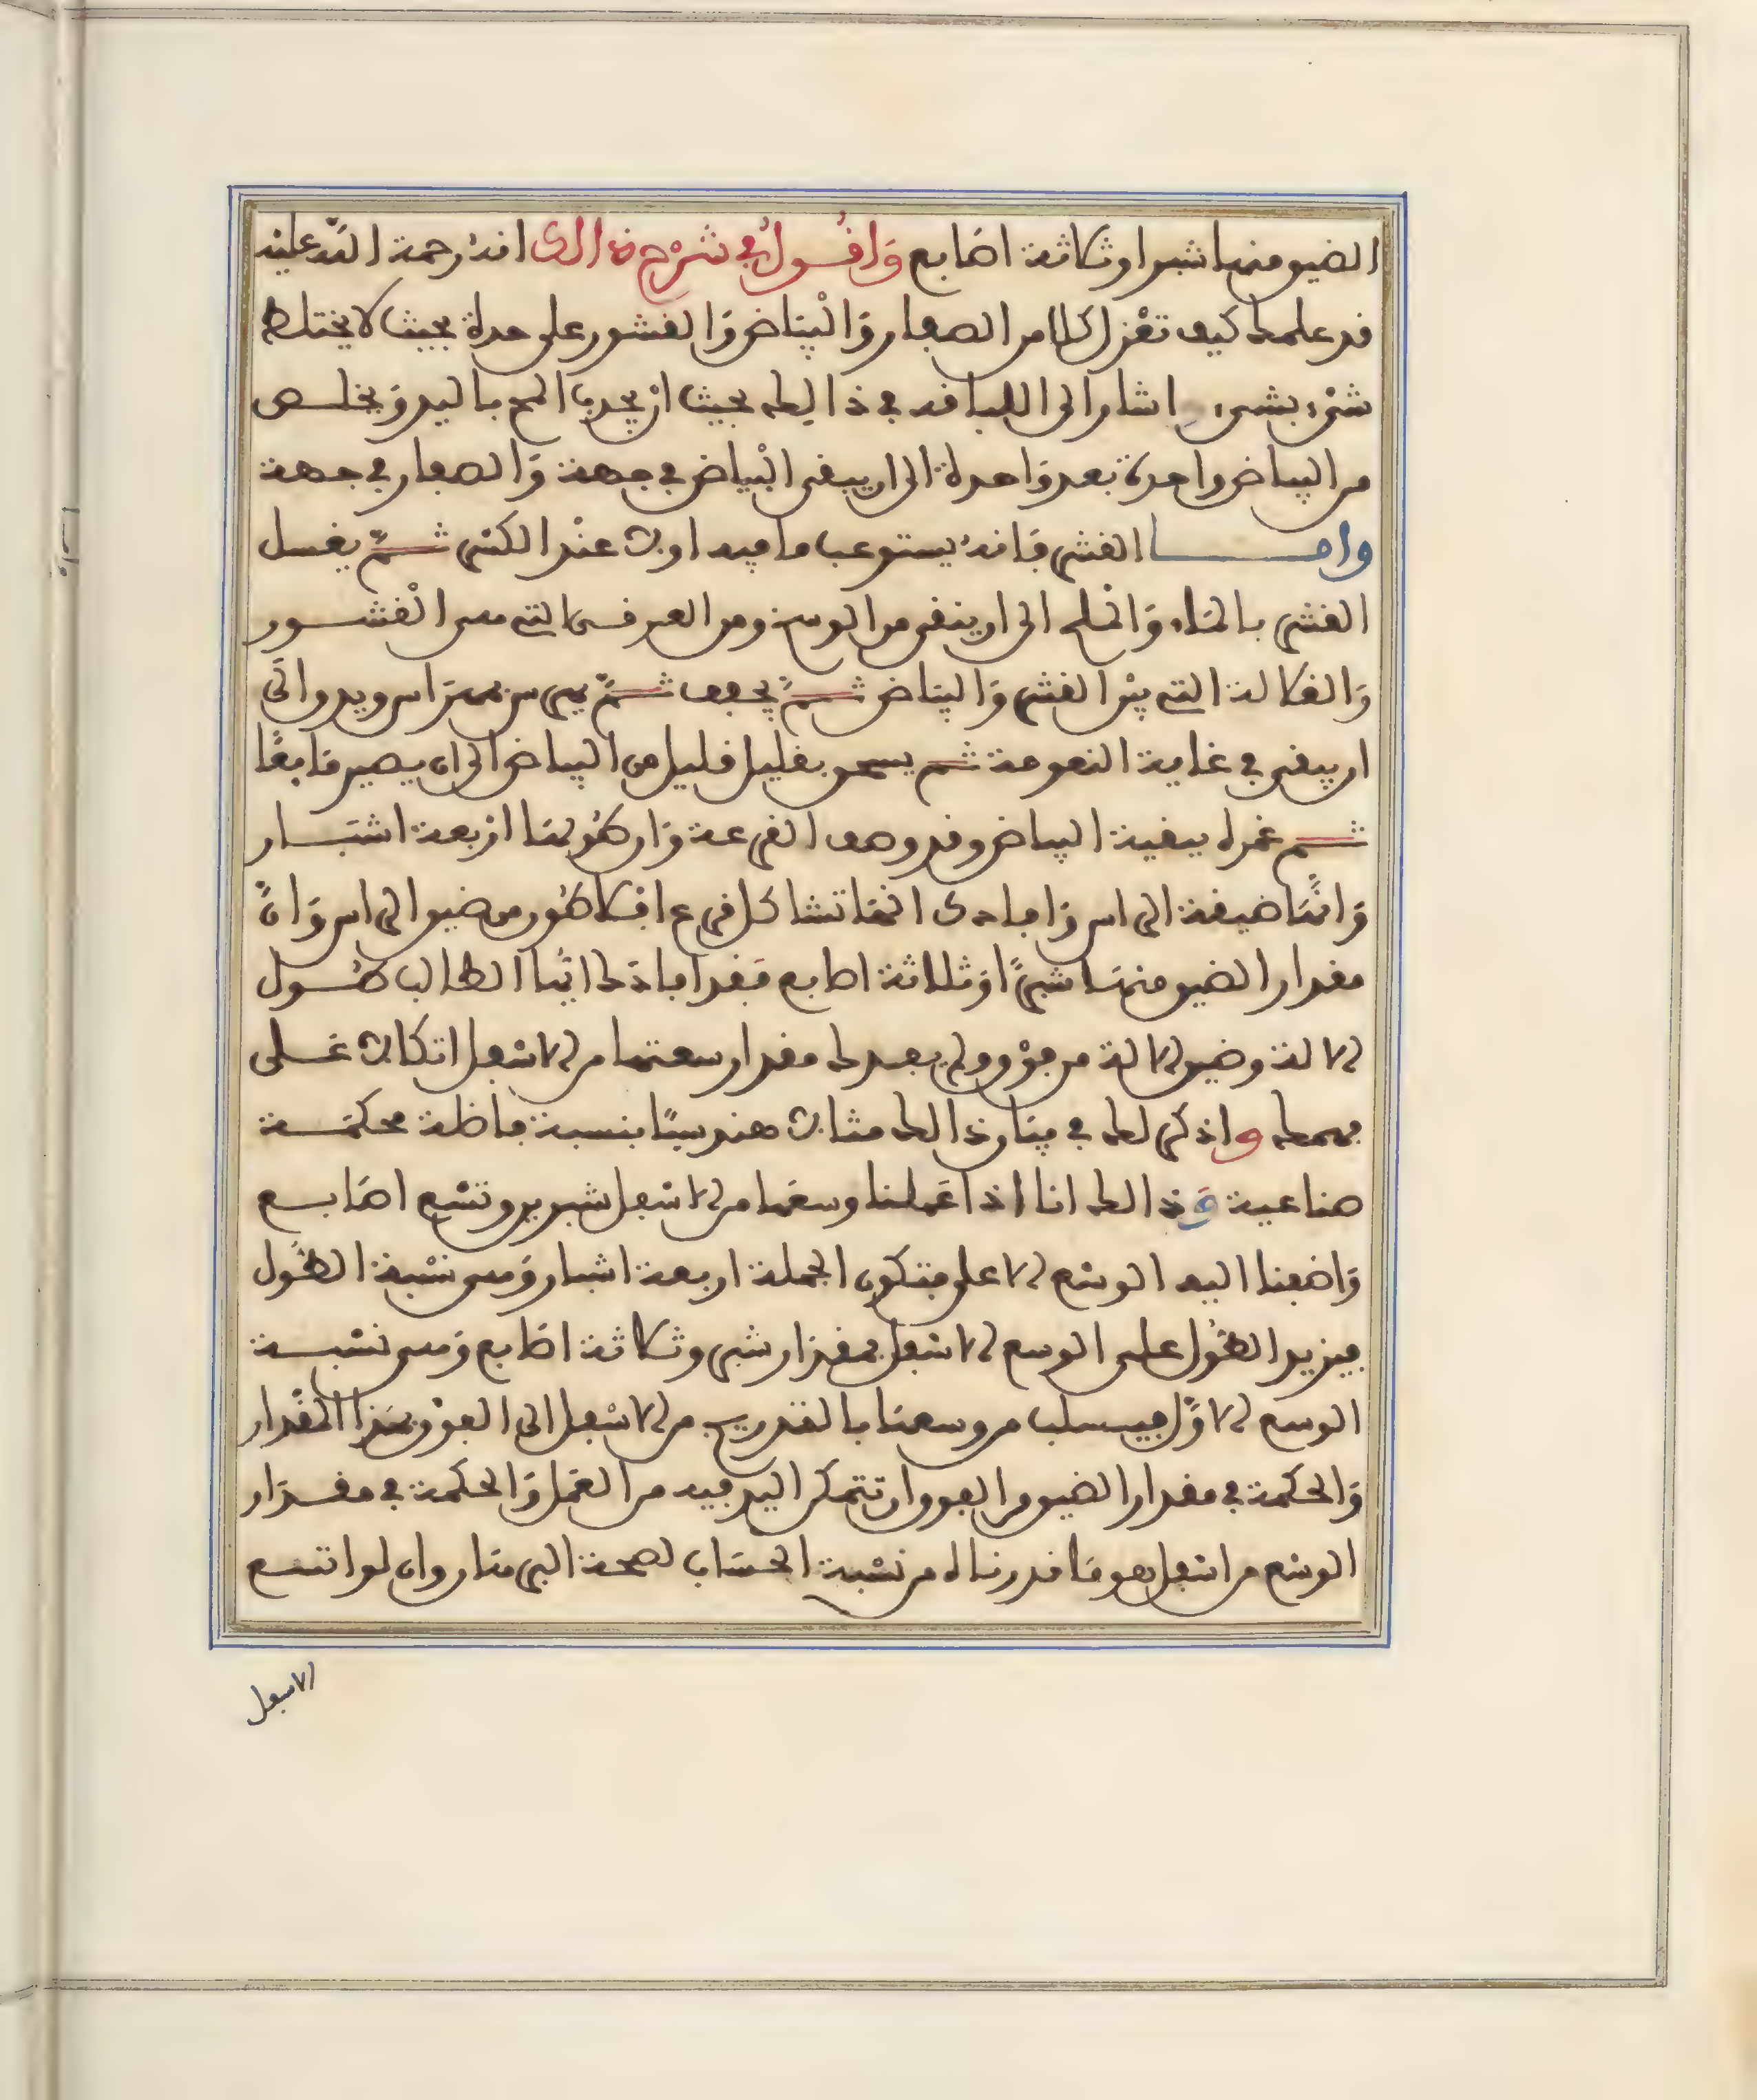 الضيق منها شبرا وثلاثة اصابع وَاقُولُ في شرح ذالك انه رحمة الله عليه
قد علمك كيف تعزل كلا من الصفار وَالبيَاض وَالقشور على حدة بحيث لا يختلط
شيء بشيء اشار الى اللباقه في ذالك بحيث ان يجدب المح باليد وَيخلص
من البياض واحدة بعد وَاحدة الى ان يبقى البيَاض في جهة وَالصفار في جهة
وامـا القشر فانه يستوعب ما فيه اولا عند الكسر ثـمّ يغسل
القشر بالمَاء وَالملح الى ان ينقى من الوسخ ومن العرقـ التي مس القشـور
وَالغلالة التي بين القشر وَالبيَاض ثـمّ يجفف ثـمّ الى
ان يبقى في غاية النعومة ثـم يسحق بقليل قليل من البياض الى ان يصير مَايعًا
ثـم غمره ببقية البياض وقد وصف القرعة وَان طُولهَا اربعة اشبَـار
وَانَّهَا ضيقة الراس وَافادك انهَا تشاكل قرع من ضيق الراس وَانَّ
مقدار الضيق منهَا شبرًا وَثلاثة اصابع فقد افادك ايُها الطالب طُـول
الالة وضيق الالة من فوْق ولم يفدك مقدار سعتها من الاسْفل اتكالا عَـلى
فهمك واذكر لك في بيَان ذالك مثالا هندسيًّا بنسبة فاظلة محكمَـة
صناعية وَذالك انا اذا عَملنا وسعَها من الاسْفل شبرين وتسْع اصَابـع
وَاضفنا اليه الوسْع الاعلى فتكون الجملة اربعة اشبار وَهي نسْبة الطُول
فيزيد الطُول على الوسع الاسْفل بمقدار شبر وثلاثة اصَابع وَهي نسْبـة
الوسع الاوَّل فيسلب من وسعهَا بالتدريج من الاسْفل الى الفوْق بهَذا المقْدار
وَالحكمة في مقدار الضيق من الفوق ان تتمكن اليد فيه من العَمل وَالحكمة في مقـدَار
الوسْع من اسْفل هو مَا قدرناه من نسْبة الحسَاب لصحة البرهَان وان لو اتسع
الاسفل